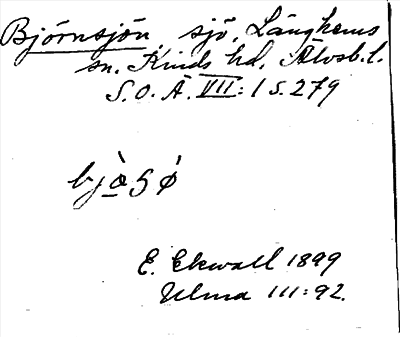 Björnsjön sjö, Länghems
sn. Kinds hd, Älvsb. l.
S.O.Ä. VII: 1 s. 279
E. Ekwall 1899
Ulma 111:92.